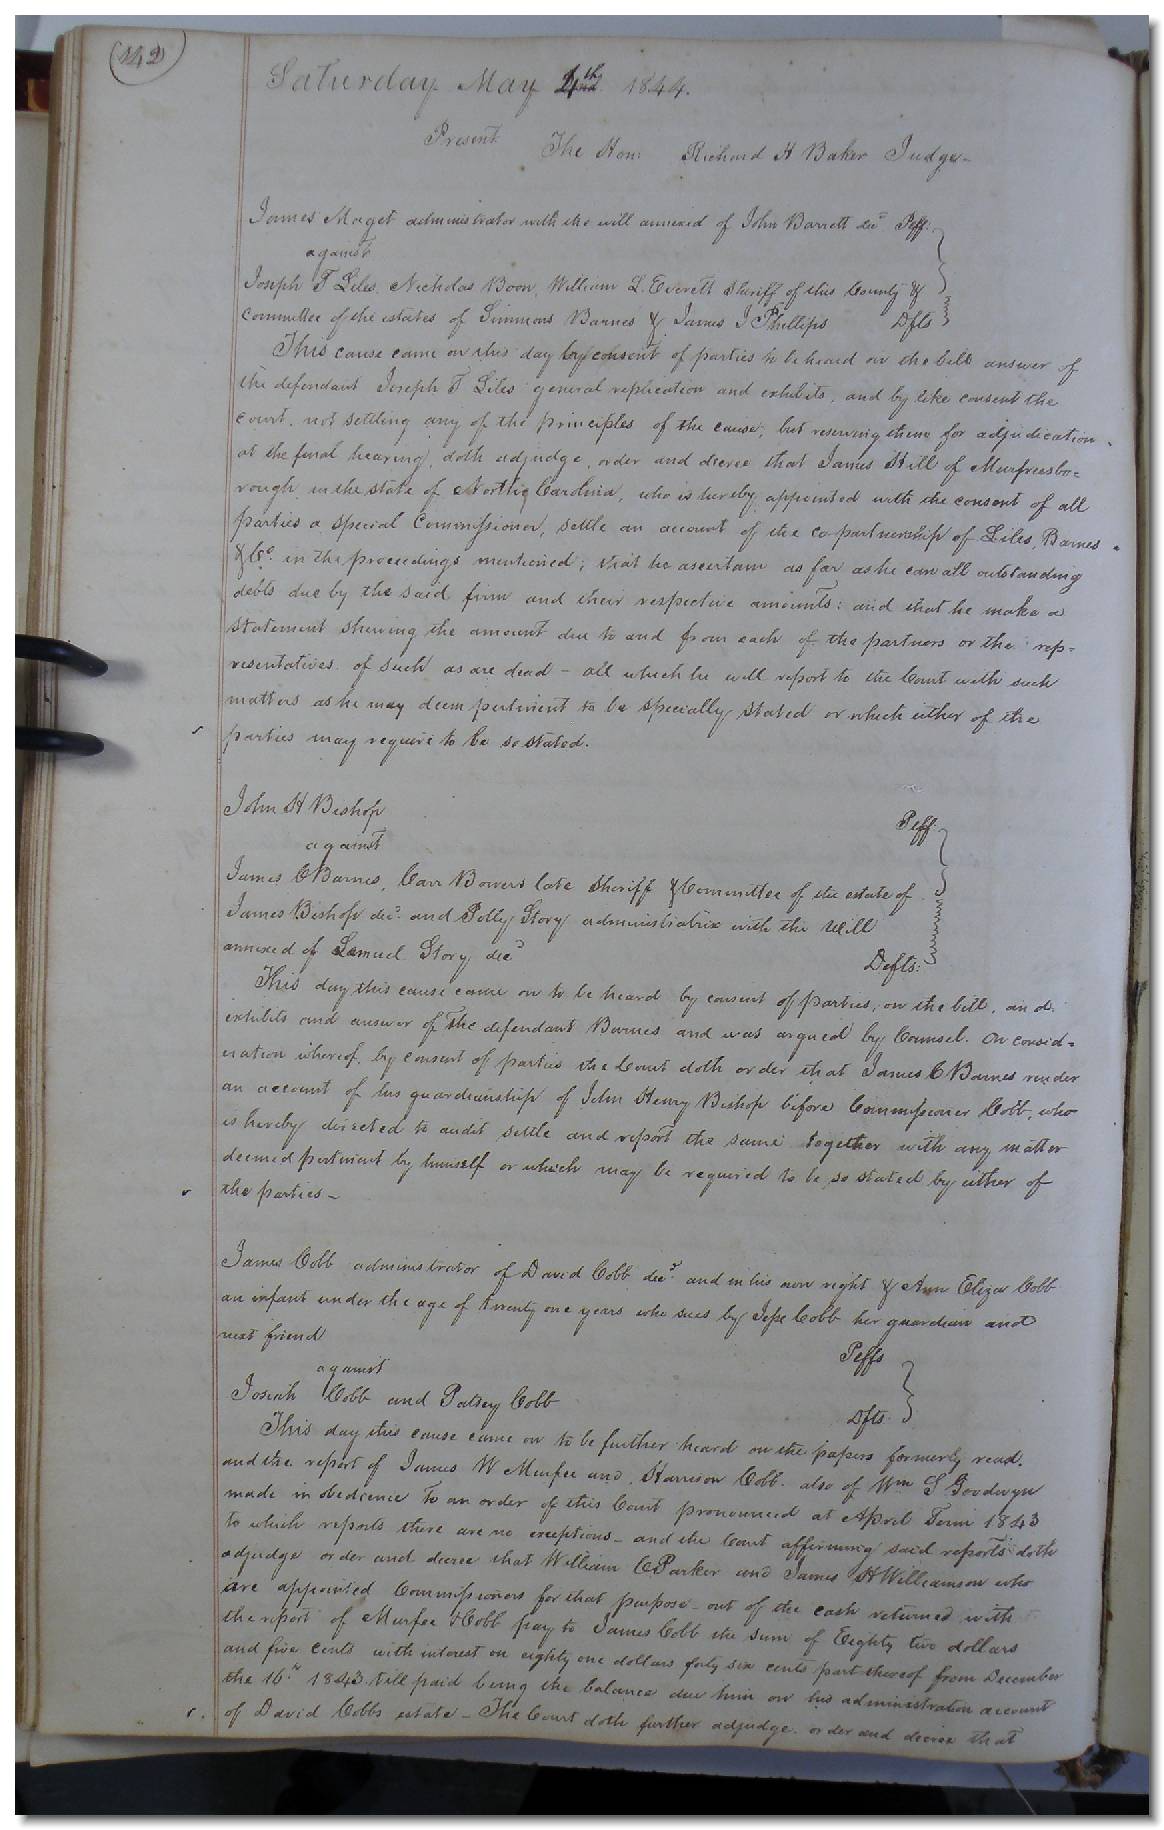 142
Saturday May 4th 1844.
Present The Hon: Richard H Baker Judge-
James Maget administrator with the will annexed of John Barrett decd. Plff.
against
Joseph T Liles, Nicholas Boon, William L. Everett Sheriff of this County &
Committee of the estates of Simmons Barnes & James J Phillips Dfts
This cause came on this day by consent of parties to be heard on the bill answer of
the defendant Joseph T Liles general replication and exhibits, and by like consent the
court, not settling any of the principles of the cause, but reserving them for adjudication
at the final hearing, doth adjudge, order and decree that James Hill of Murfreesbo=
rough in the state of North Carolina, who is hereby appointed with the consent of all
parties a special Commissioner, settle an account of the co-partnership of Liles, Barnes
& Co. in the proceedings mentioned; that he ascertain as far as he can all outstanding
debts due by the said firm and their respective amounts: and that he make a
statement shewing the amount due to and from each of the partners or the rep=
resentatives of such as are dead - all which he will report to the Court with such
matters as he may deem pertinent to be specially stated or which either of the
parties may require to be so stated.
John H Bishop Plff.
against
James C Barnes, Carr Bowers late Sheriff & Committee of the estate of
James Bishop decd. and Polly Story administratrix with the Will
annexed of Samuel Story decd Defts:
This day this cause came on to be heard by consent of parties, on the bill, and
exhibits and answer of the defendant Barnes and was argued by Counsel. On consid=
eration whereof, by consent of parties the Court doth order that James C Barnes render
an account of his guardianship of John Henry Bishop before Commissioner Cobb, who
is hereby directed to audit settle and report the same together with any matter
deemed pertinent by himself or which may be required to be so stated by either of
the parties -
James Cobb administrator of David Cobb decd. and in his own right & Ann Eliza Cobb
an infant under the age of twenty one years who sues by Jesse Cobb her guardian and
next friend Plffs
against
Josiah Cobb and Patsey Cobb Dfts
This day this cause came on to be further heard on the papers formerly read,
and the report of James W Murfee and Harrison Cobb. also of Wm S Goodwyn
made in obedience to an order of this Court pronounced at April Term 1843
to which reports there are no exceptions - and the Court affirming said reports doth
adjudge order and decree that William C Parker and James H Williamson who
are appointed Commissioners for that purpose - out of the cash returned with
the report of Murfee & Cobb pay to James Cobb the sum of Eighty two dollars
and five cents with interest on eighty one dollars forty six cents part thereof from December
the 16th 1843 till paid being the balance due him on his administration account
of David Cobbs estate - The Court doth further adjudge. order and decree that